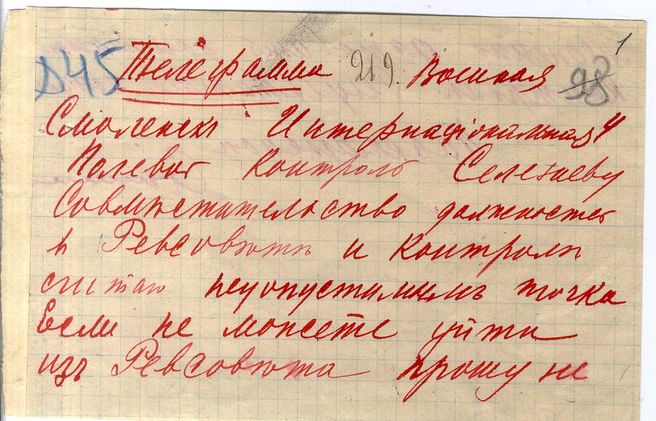 1
845 Телеграмма 219. Военная 98
Смоленскъ Интернаціональная 4
Полевой Контроль Селезневу
Совмѣстительство должностей
в Ревсовѣтѣ и Контроль
считаю недопустимымъ точка
Если не можете уйти
изъ Ревсовѣта прошу не